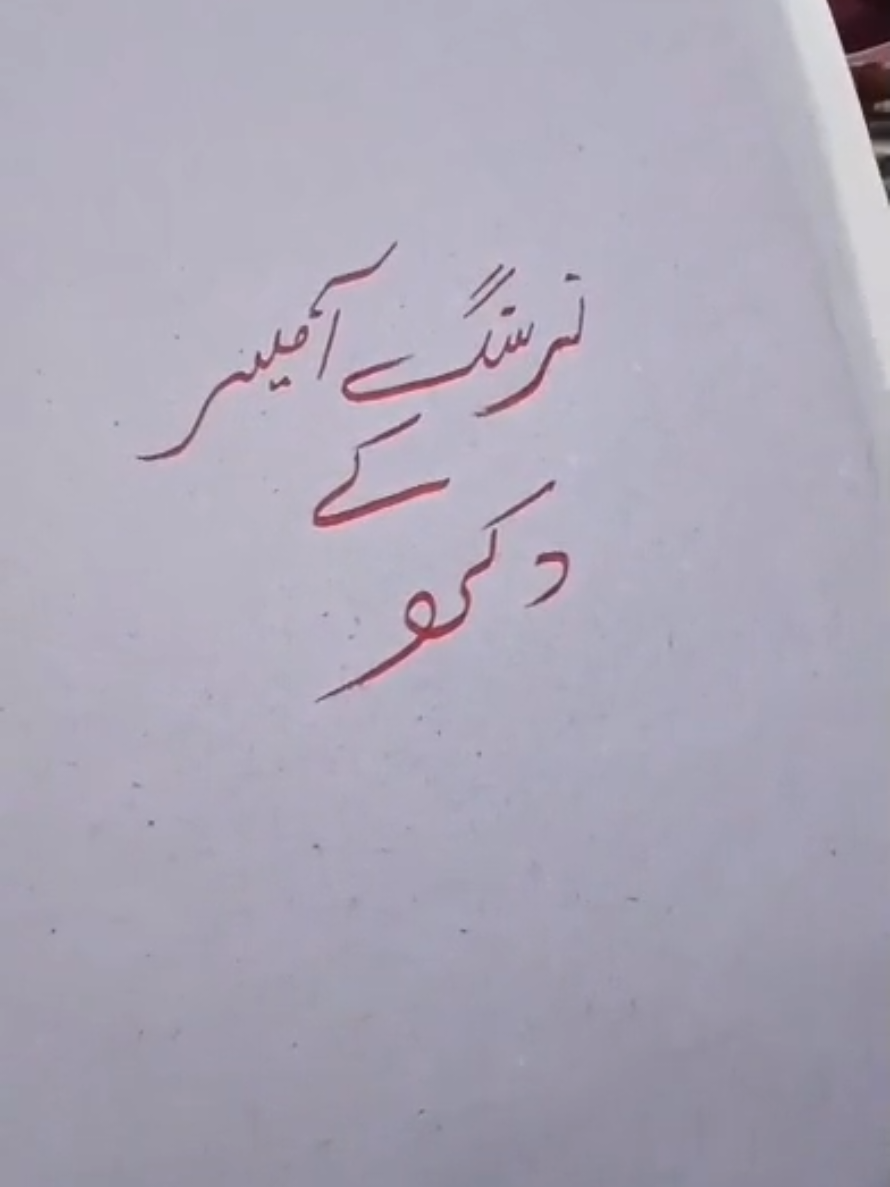 نرسنگ آفیسر
کے
دکھ